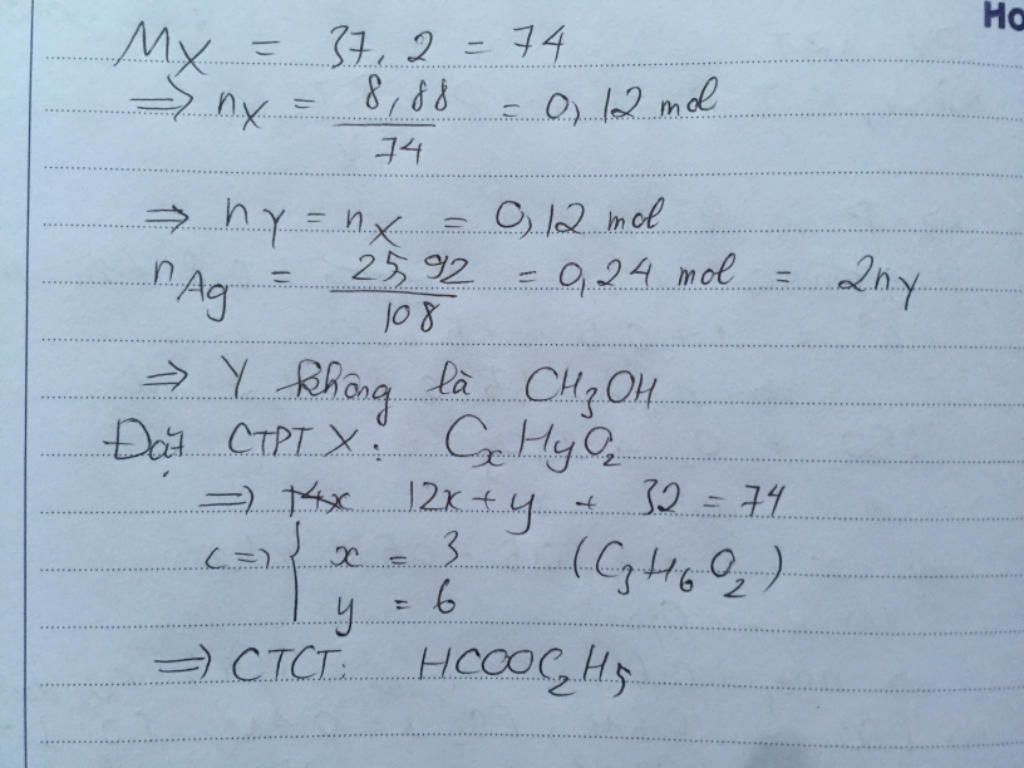 Ho
M_X = 37,2 = 74
=> n_X = 8,88/74 = 0,12 mol
=> n_Y = n_X = 0,12 mol
n_Ag = 25,92/108 = 0,24 mol = 2n_Y
=> Y không là CH₃OH
Đặt CTPT X: CₓH_yO₂
=> 14x 12x + y + 32 = 74
<=> { x = 3 (C₃H₆O₂)
y = 6
=> CTCT: HCOOC₂H₅